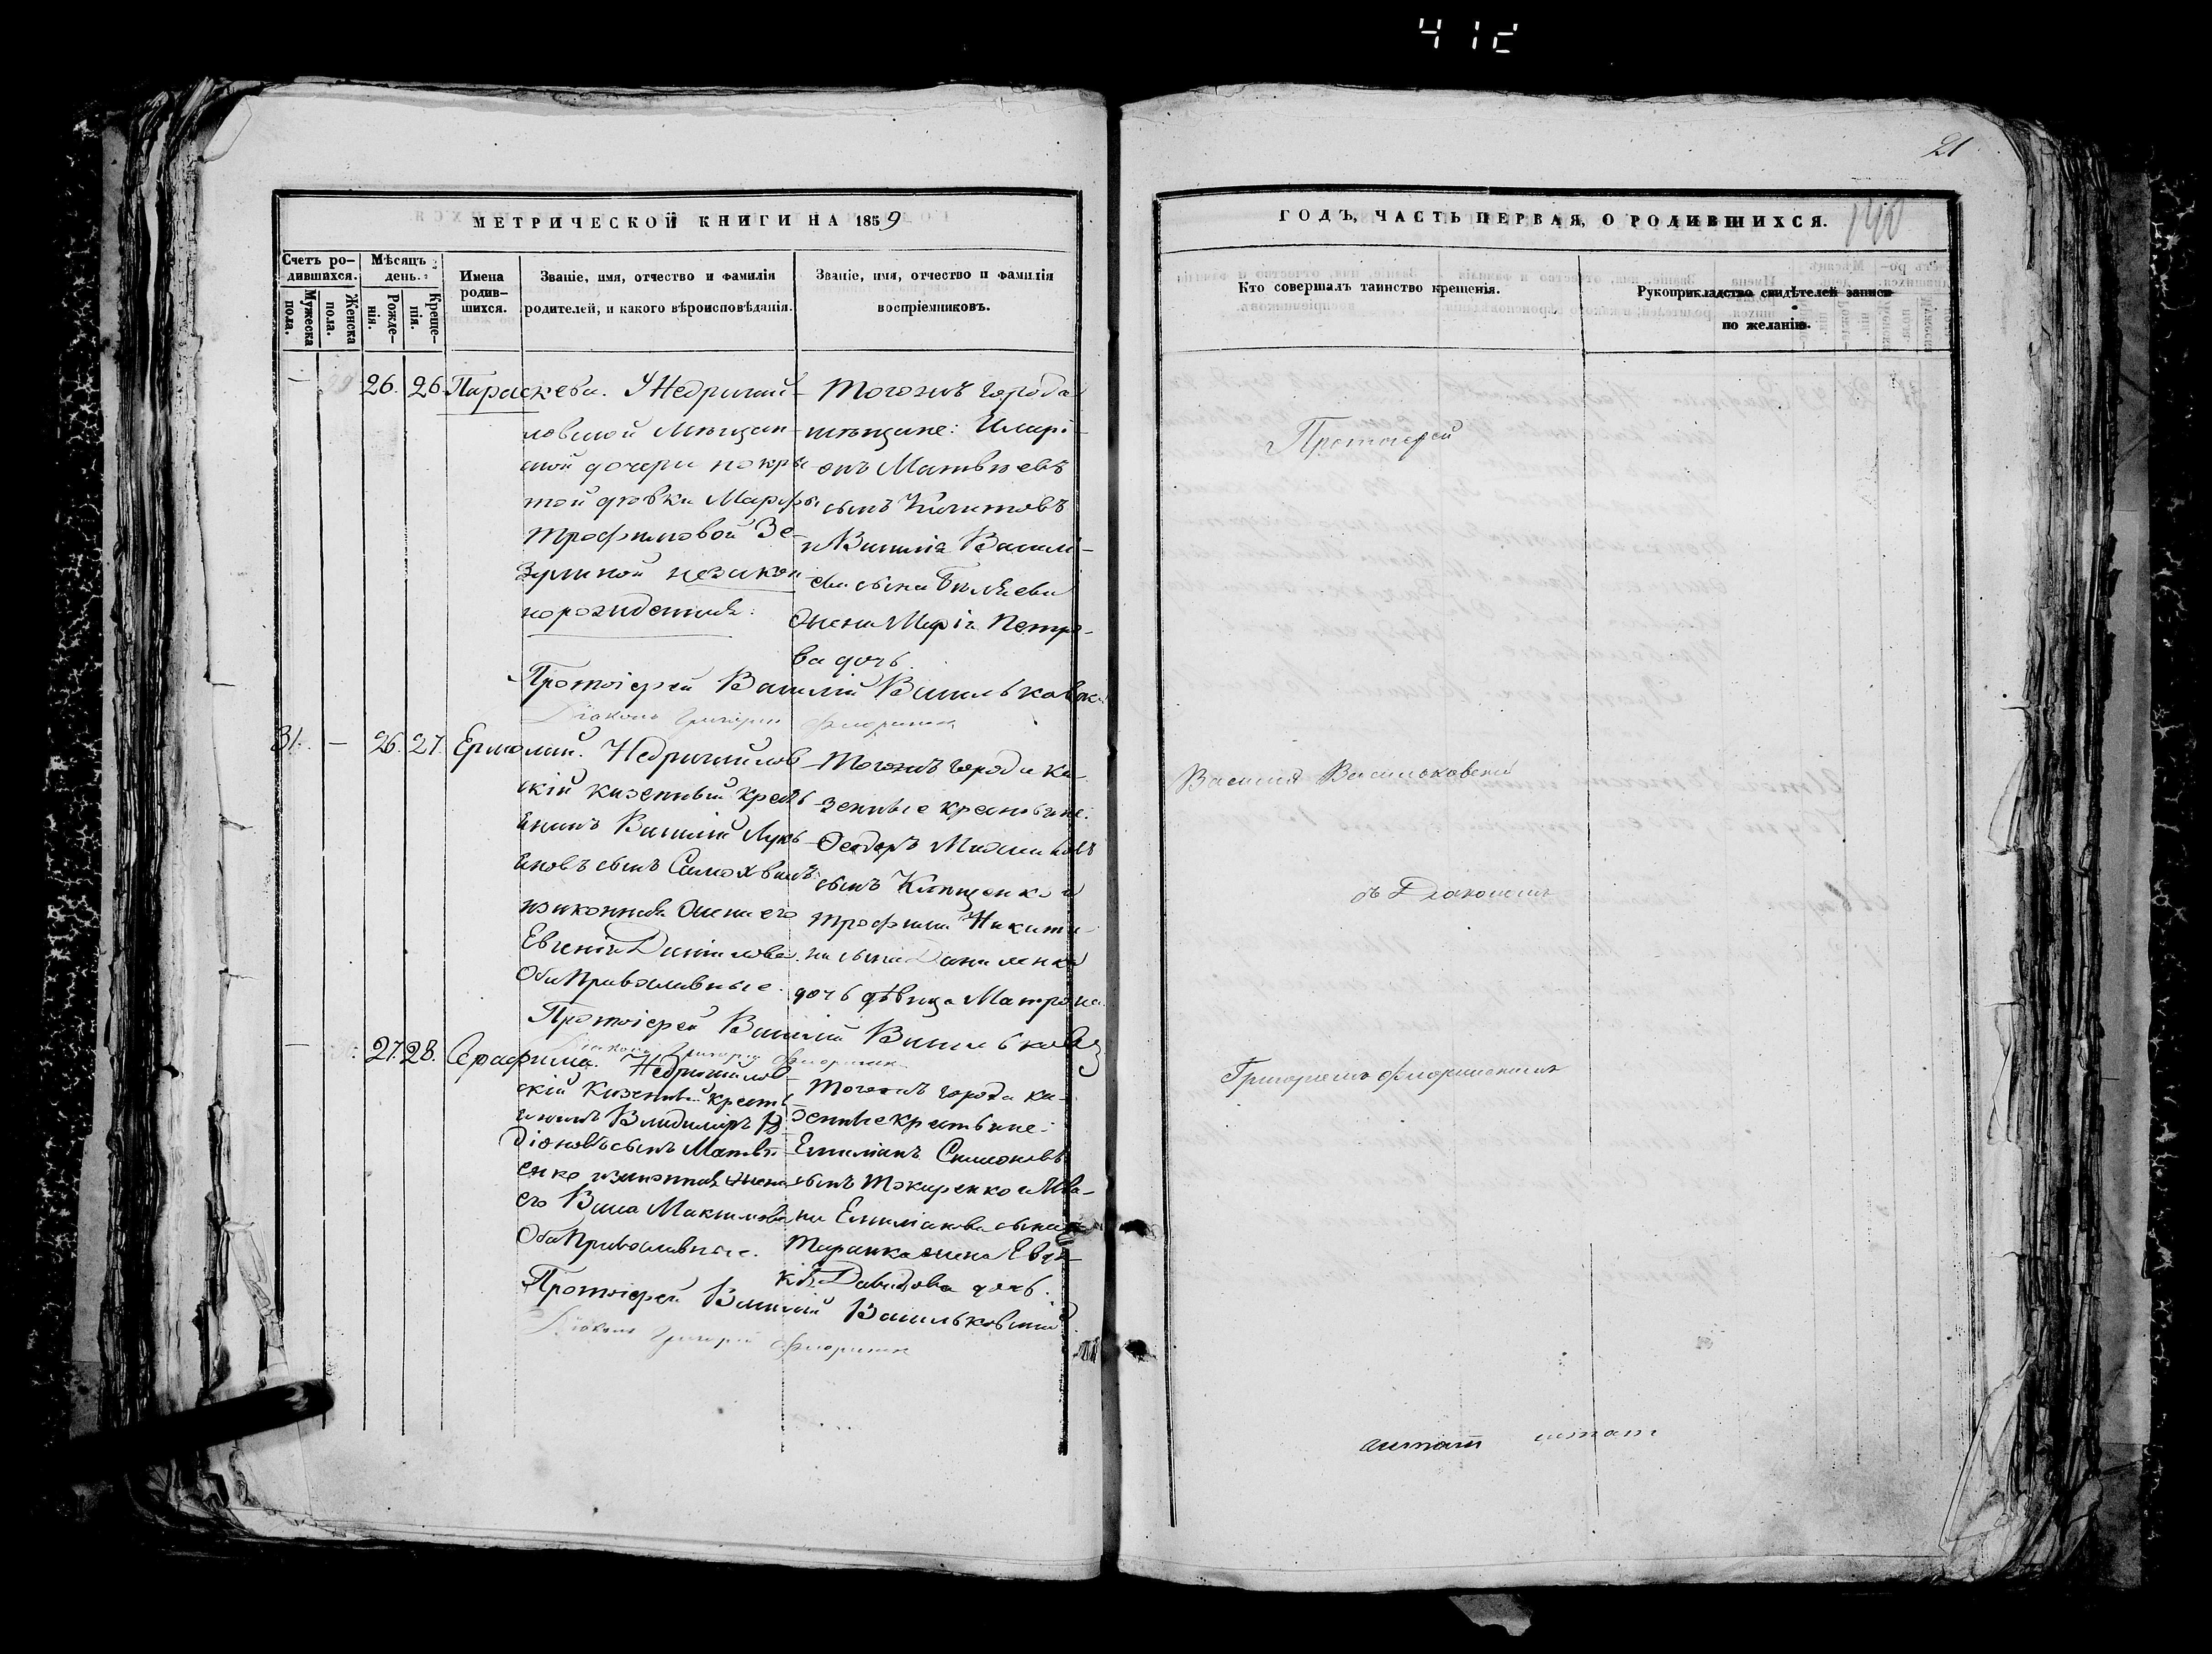 412
21
МЕТРИЧЕСКОЙ КНИГИ НА 1859
ГОДЪ, ЧАСТЬ ПЕРВАЯ, О РОДИВШИХСЯ.
140
Счетъ ро-
дившихся.
Мужеска
пола.
Женска
пола.
Мѣсяцъ
день.
Рожде-
нія.
Креще-
нія.
Имена
родив-
шихся.
Званіе, имя, отчество и фамилія
родителей, и какого вѣроисповѣданія.
Званіе, имя, отчество и фамилія
воспріемниковъ.
Кто совершалъ таинство крещенія.
Рукоприкладство свидѣтелей записи
по желанію.
26. 26 Параскева.
ловской Мѣщан-
ской дочери покры
той дѣвки Марфы
Трофимовой Зе-
зулиной незакон
норожденная.
Тогожъ города
мѣщане: Илари-
онъ Матвѣевъ
сынъ
и Василія Василі-
ева сына Бѣляева
жена Марія Петро-
ва дочь.
Протоіерей Василій Васильковскі
Діаконъ Григорій
31. — 26. 27. Ермолай. Недригайлов-
скій казенный кресть
янинъ Василій Лукь
яновъ сынъ Самохвалъ
и законная жена его
Евгенія Данилова.
Оба Православные.
Тогожъ города ка-
зенные крестьяне:
Ѳеодоръ
сынъ Клищенко и
Трофима Никити-
на сына Даниленка
дочь дѣвица Матрона.
Протоіерей Василій Васильков
Діаконъ Григорій
— 27. 28. Серафима. Недригайлов-
скій Казенный крестья
янинъ Владиміръ
діоновъ сынъ Матвѣ
енко и законная жена
его Васса Максимова
Оба Православные.
Тогожъ города ка-
зенные крестьяне:
Емиліанъ Симоновъ
сынъ Токаренко и Ива-
на Емиліанова сына
Таранка жена Евдо-
кія Давидова дочь.
Протоіерей Василій Васильковскій
Діаконъ Григорій
Протоіерей
Василій Васильковскій
съ Діакономъ
Григоріемъ